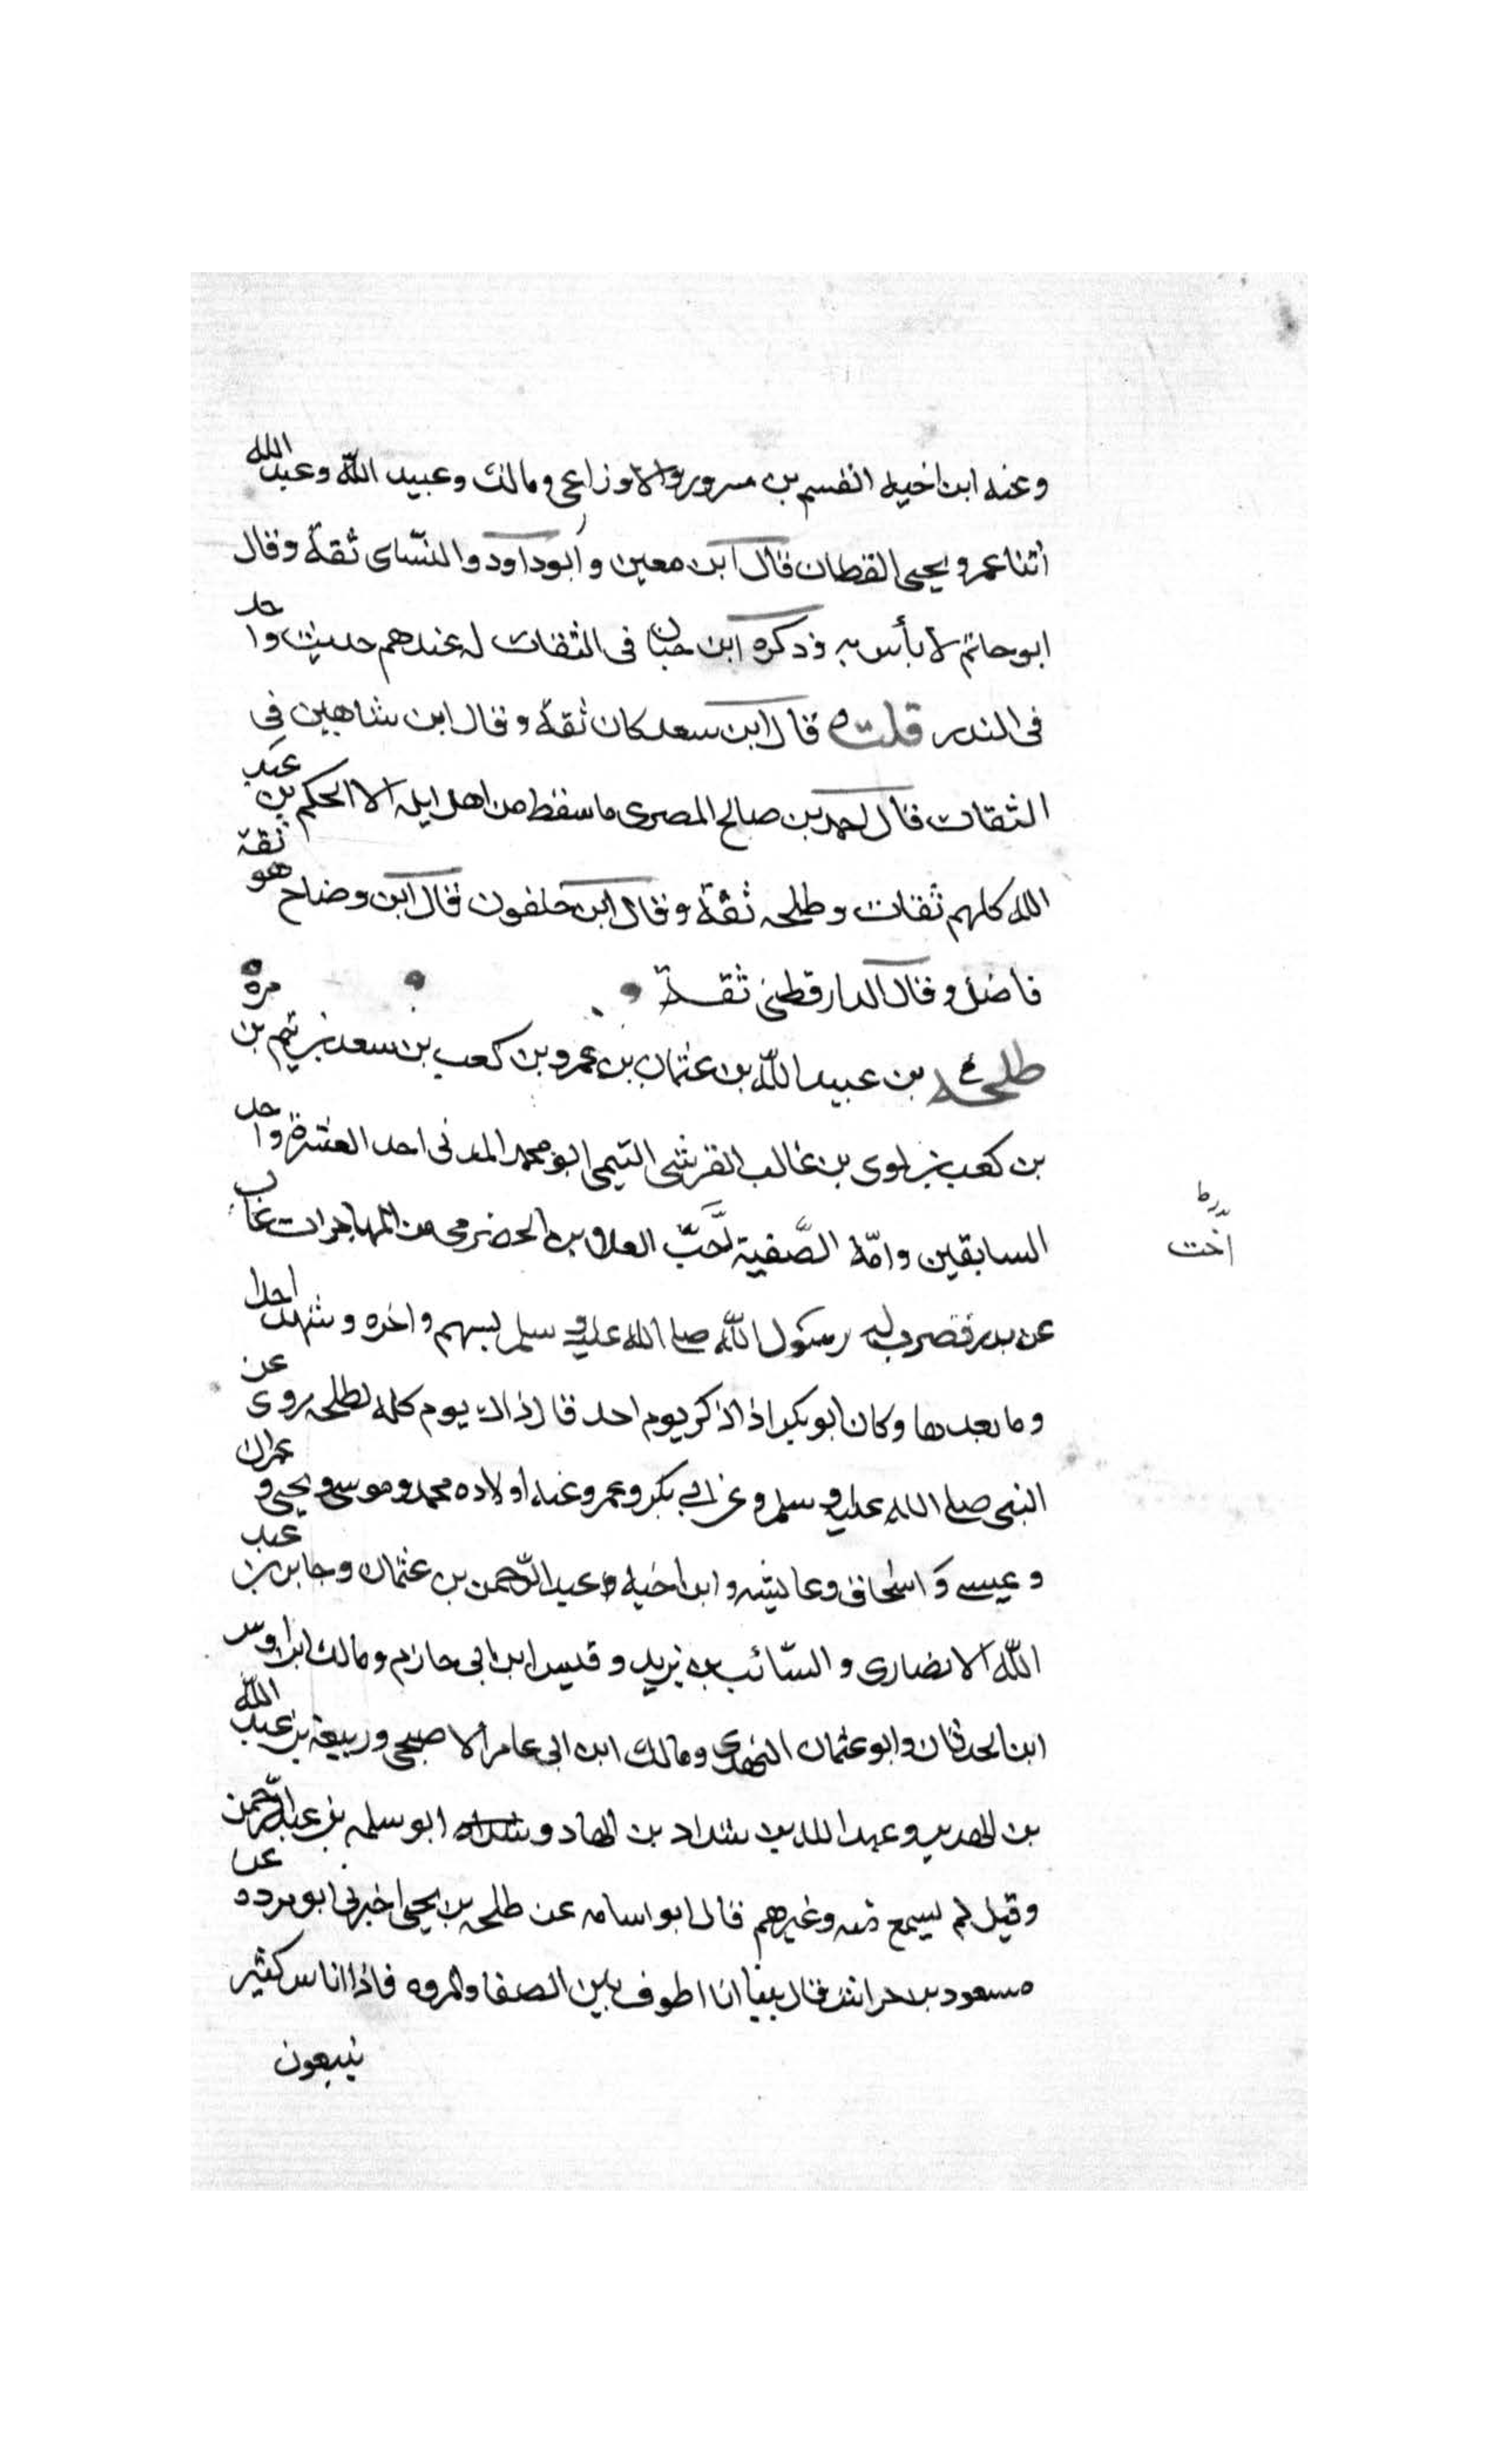 وعنه ابن اخيه القسم بن مسرور والاوزاعي ومالك وعبيد الله وعبد الله
أبنا عمرو يحيى القطان قال ابن معين وأبو داود والنسّاى ثقة وقال
ابو حاتم لا بأس به وذكره ابن حبان فى الثقات له عندهم حديث واحد
فى النذر قلت قال ابن سعد كان ثقة وقال ابن شاهين في
الثقات قال احمد بن صالح المصرى ما سقط من اهل ايله الا الحكم بن عبد
الله كلهم ثقات وطلحه ثقة وقال ابن خلفون قال ابن وضاح هو ثقة
فاضل وقال الدارقطنى ثقة
طلحه بن عبيد اللّه بن عثمان بن عمرو بن كعب بن سعد بن تيم بن مره
بن كعب بن لوى بن غالب القرشى التيمي ابو محمد المدنى احد العشرة واحد
السابقين وامّه الصّفية العلاء بن الحضرمى من المهاجرات غاب
اخت
عن بدر فضرب له رسول اللّه صلى الله عليه وسلم بسهم واخره وشهد احدا
وما بعدها وكان ابو بكر اذا ذكر يوم احد قال ذاك يوم كله لطلحه روى عن
النبى صلى الله عليه وسلم وعن ابي بكر وعمر وعنه اولاده محمد وموسى ويحيى وعمران
وعيسى واسحاق وعايشه وابن اخيه عبد الرّحمن بن عثمان وجابر بن عبد
اللّه الانصارى والسّائب بن يزيد وقيس ابن ابى حازم ومالك ابن اوس
ابن الحدثان وابو عثمان النهدى ومالك ابن ابى عامر الاصبحى وربيعة بن عبد اللّه
بن الهدير وعبد الله بن شداد بن الهاد و ابو سلمه بن عبد الرّحمن
وقيل لم يسمع منه وغيرهم قال ابو اسامه عن طلحه بن يحيى اخبرنى ابو برده عن
مسعود بن حراش قال بينا انا اطوف بين الصفا والمروه فاذا اناس كثير
يتبعون